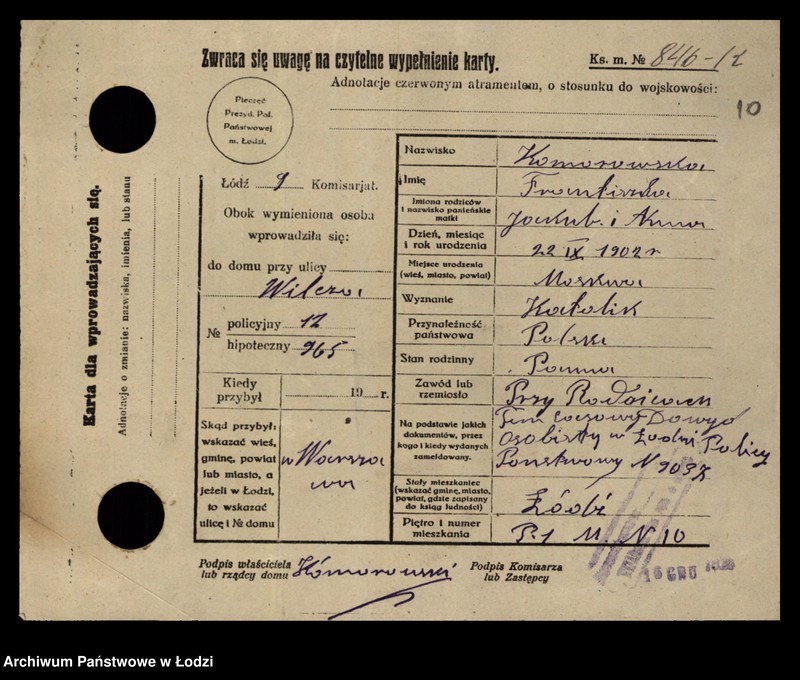 Zwraca się uwagę na czytelne wypełnienie karty.
Ks. m. № 846-/I
Adnotacje czerwonym atramentem, o stosunku do wojskowości:
10
Karta dla wprowadzających się.
Adnotacje o zmianie: nazwiska, imienia, lub stanu
Pieczęć
Prezyd. Pol.
Państwowej
m. Łodzi.
Łódź 9 Komisarjat.
Obok wymieniona osoba
wprowadziła się:
do domu przy ulicy
Wilcza
№ policyjny 12
hipoteczny 965
Kiedy
przybył 19 r.
Skąd przybył:
wskazać wieś,
gminę, powiat
lub miasto, a
jeżeli w Łodzi,
to wskazać
ulicę i № domu
w Warsza
wa
Nazwisko Komorowska
Imię Franciszka
Imiona rodziców
i nazwisko panieńskie
matki
Jakub i Anna
Dzień, miesiąc
i rok urodzenia
22 IX 1902 r
Miejsce urodzenia
(wieś, miasto, powiat)
Moskwa
Wyznanie Katolik
Przynależność
państwowa
Polska
Stan rodzinny Panna
Zawód lub
rzemiosło
Przy Rodzicach
Na podstawie jakich
dokumentów, przez
kogo i kiedy wydanych
zameldowany.
Tem czasowy Dowyd
osobisty w Łodzi Policy
Panstwowy N 9037
Stały mieszkaniec
(wskazać gminę, miasto,
powiat, gdzie zapisany
do ksiąg ludności)
Łódź
Piętro i numer
mieszkania
P. 1 M. N 10
Podpis właściciela
lub rządcy domu
Komorowski
Podpis Komisarza
lub Zastępcy
16 GRU
Archiwum Państwowe w Łodzi